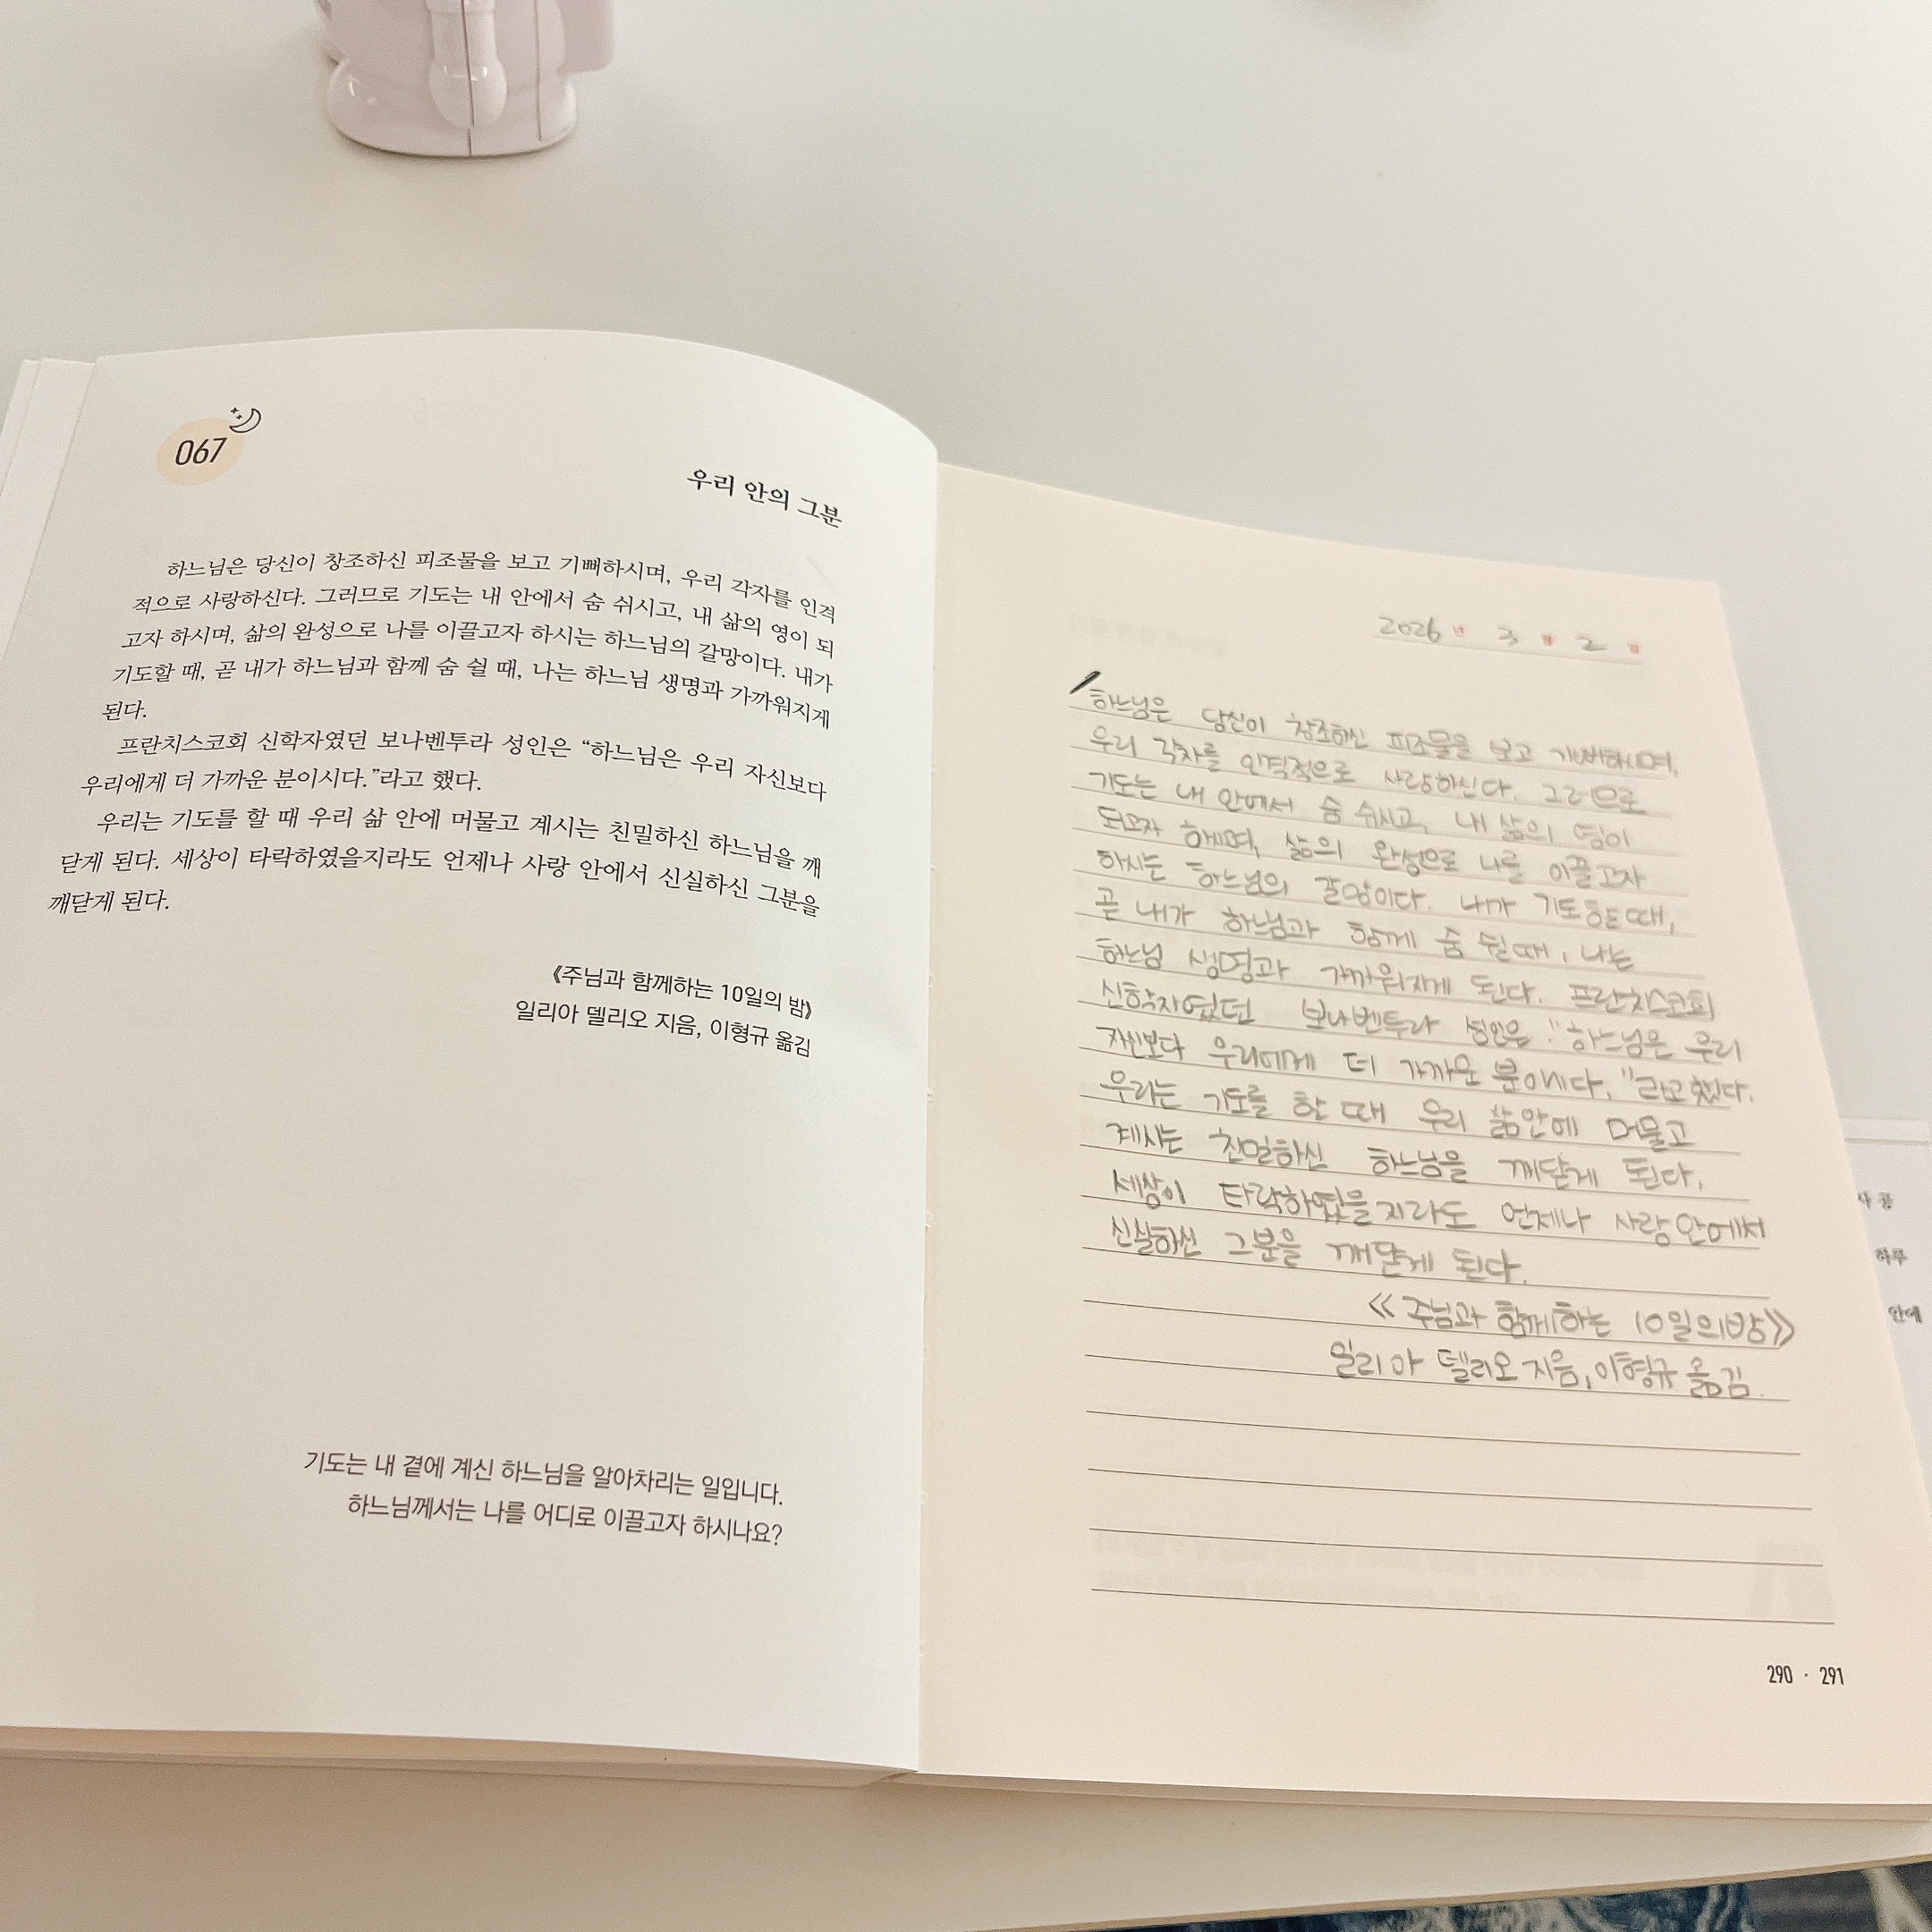 067
우리 안의 그분
하느님은 당신이 창조하신 피조물을 보고 기뻐하시며, 우리 각자를 인격
적으로 사랑하신다. 그러므로 기도는 내 안에서 숨 쉬시고, 내 삶의 영이 되
고자 하시며, 삶의 완성으로 나를 이끌고자 하시는 하느님의 갈망이다. 내가
기도할 때, 곧 내가 하느님과 함께 숨 쉴 때, 나는 하느님 생명과 가까워지게
된다.
프란치스코회 신학자였던 보나벤투라 성인은 “하느님은 우리 자신보다
우리에게 더 가까운 분이시다.”라고 했다.
우리는 기도를 할 때 우리 삶 안에 머물고 계시는 친밀하신 하느님을 깨
닫게 된다. 세상이 타락하였을지라도 언제나 사랑 안에서 신실하신 그분을
깨닫게 된다.
《주님과 함께하는 10일의 밤》
일리아 델리오 지음, 이형규 옮김
기도는 내 곁에 계신 하느님을 알아차리는 일입니다.
하느님께서는 나를 어디로 이끌고자 하시나요?
2026년 3월 2일
하느님은 당신이 창조하신 피조물을 보고 기뻐하시며,
우리 각자를 인격적으로 사랑하신다. 그러므로
기도는 내 안에서 숨 쉬시고, 내 삶의 영이
되고자 하시며, 삶의 완성으로 나를 이끌고자
하시는 하느님의 갈망이다. 내가 기도할 때,
곧 내가 하느님과 함께 숨 쉴 때, 나는
하느님 생명과 가까워지게 된다. 프란치스코회
신학자였던 보나벤투라 성인은 "하느님은 우리
자신보다 우리에게 더 가까운 분이시다."라고 했다.
우리는 기도를 할 때 우리 삶 안에 머물고
계시는 친밀하신 하느님을 깨닫게 된다.
세상이 타락하였을지라도 언제나 사랑 안에서
신실하신 그분을 깨닫게 된다.
《주님과 함께하는 10일의 밤》
일리아 델리오 지음, 이형규 옮김.
290 · 291
하루
안에